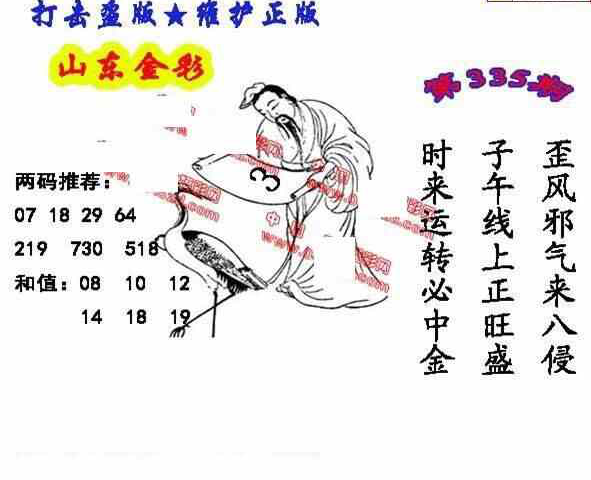 打击盗版★维护正版
山东金彩
第335期
两码推荐：
07 18 29 64
219 730 518
和值：08 10 12
14 18 19
3
歪风邪气来八侵
子午线上正旺盛
时来运转必中金